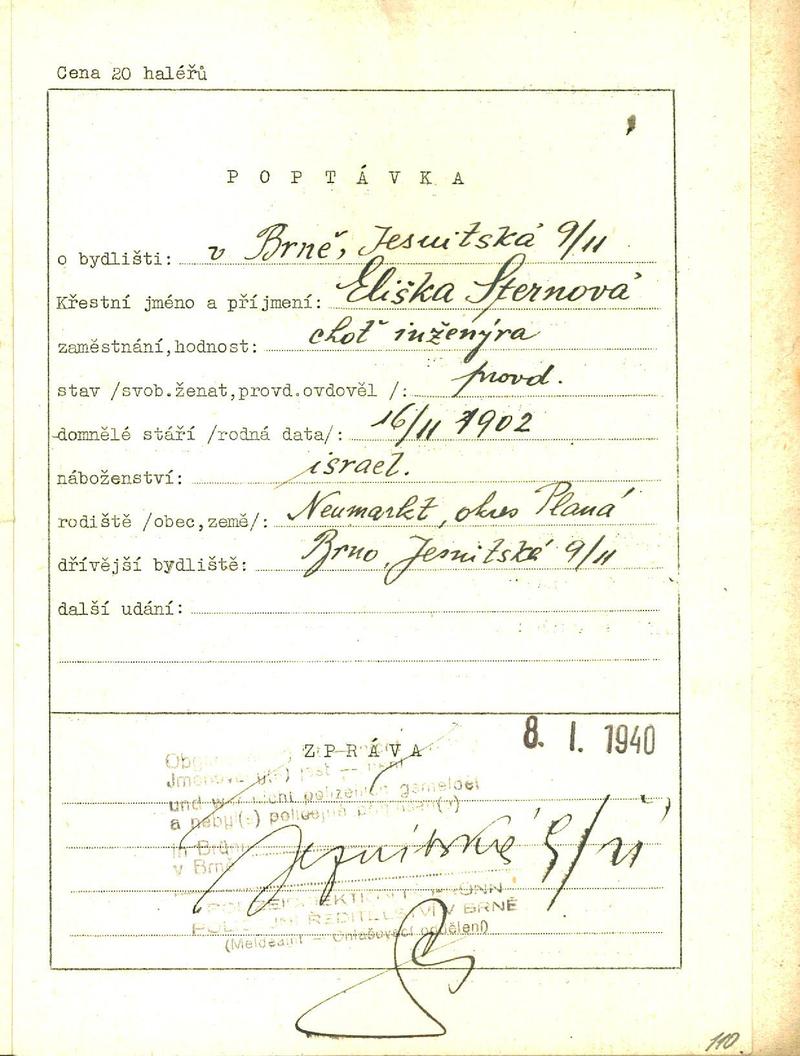 Cena 20 haléřů
POPTÁVKA
o bydlišti: v Brně, Jesuitská 9/II
Křestní jméno a příjmení: Eliška Sternová
zaměstnání,hodnost: choť inženýra
stav /svob.ženat,provd.ovdověl /: provd.
domnělé stáří /rodná data/: 16/II 1902
náboženství: israel.
rodiště /obec,země/: Neumarkt, okres Planá
dřívější bydliště: Brno, Jesuitská 9/II
další udání:
8. I. 1940
ZPRÁVA
und polizeilich gemeldet
a nebyl(a) policejně
in Brünn
v Brně
Jezuitská 9/II
POLIZEIDIREKTION BRÜNN
POLICEJNÍ ŘEDITELSTVÍ V BRNĚ
(Meldeamt — Ohlašovací oddělení)
110